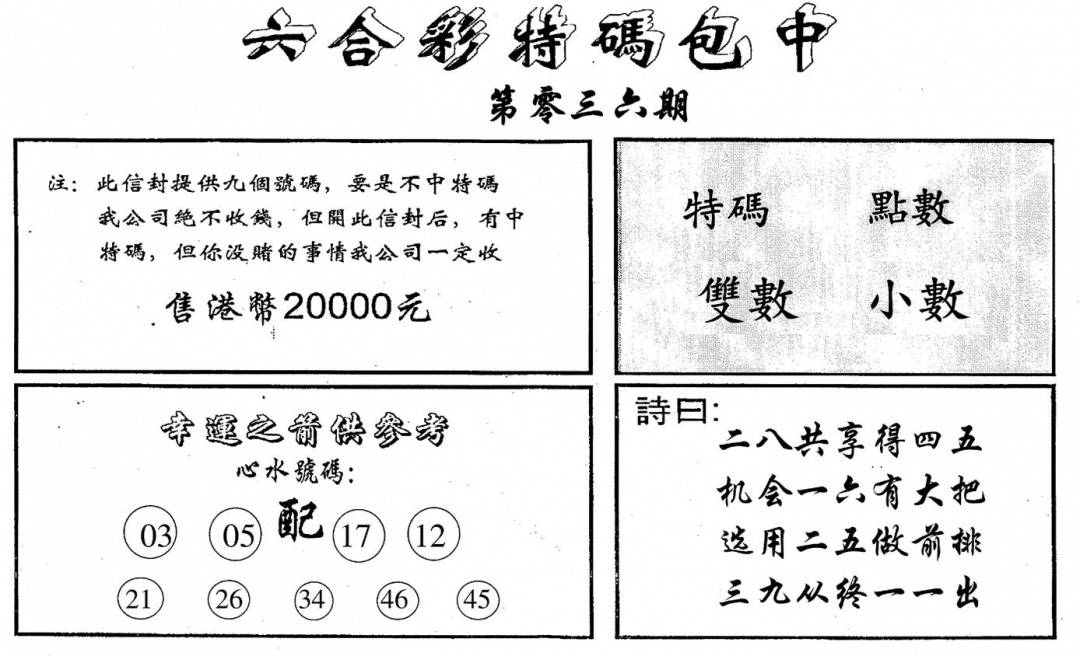 六合彩特碼包中
第零三六期
注：此信封提供九個號碼，要是不中特碼
我公司絕不收錢，但開此信封后，有中
特碼，但你没賭的事情我公司一定收
售港幣20000元
特碼 點數
雙數 小數
幸運之箭供參考
心水號碼：
03 05 配 17 12
21 26 34 46 45
詩曰：
二八共享得四五
机会一六有大把
选用二五做前排
三九从终一一出